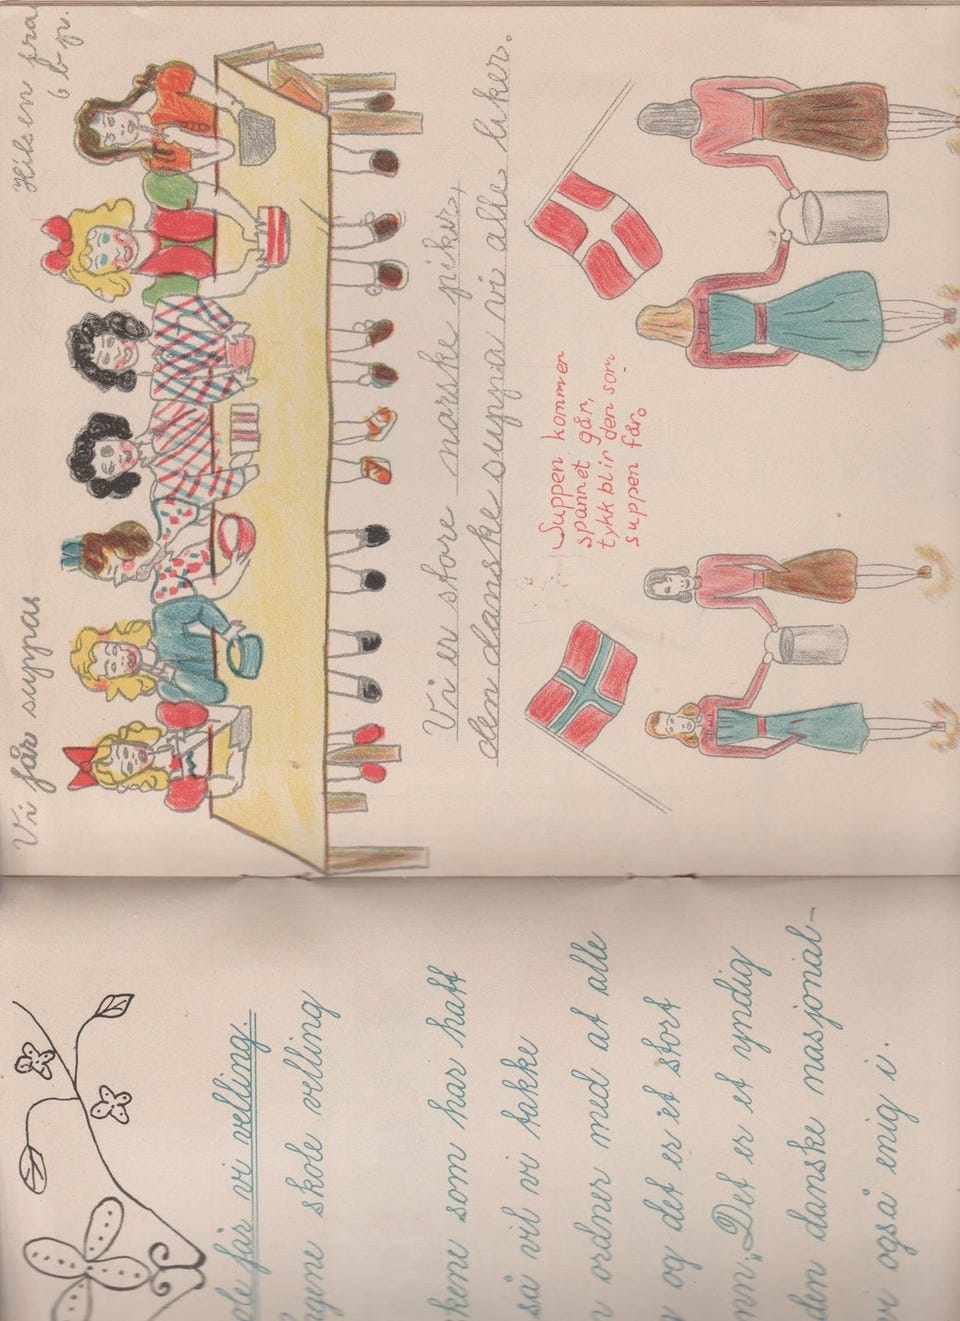 får vi velling.
skole velling
som har hatt
så vil vi takke
ordner med at alle
og det er et stort
„Det er et yndig
den danske nasjonal-
også enig i.
Vi får suppa
Hilsen fra
6 b p.
Vi er store norske piker,
den danske suppa vi alle liker.
Suppen kommer
spannet går,
tykk blir den som
suppen får.